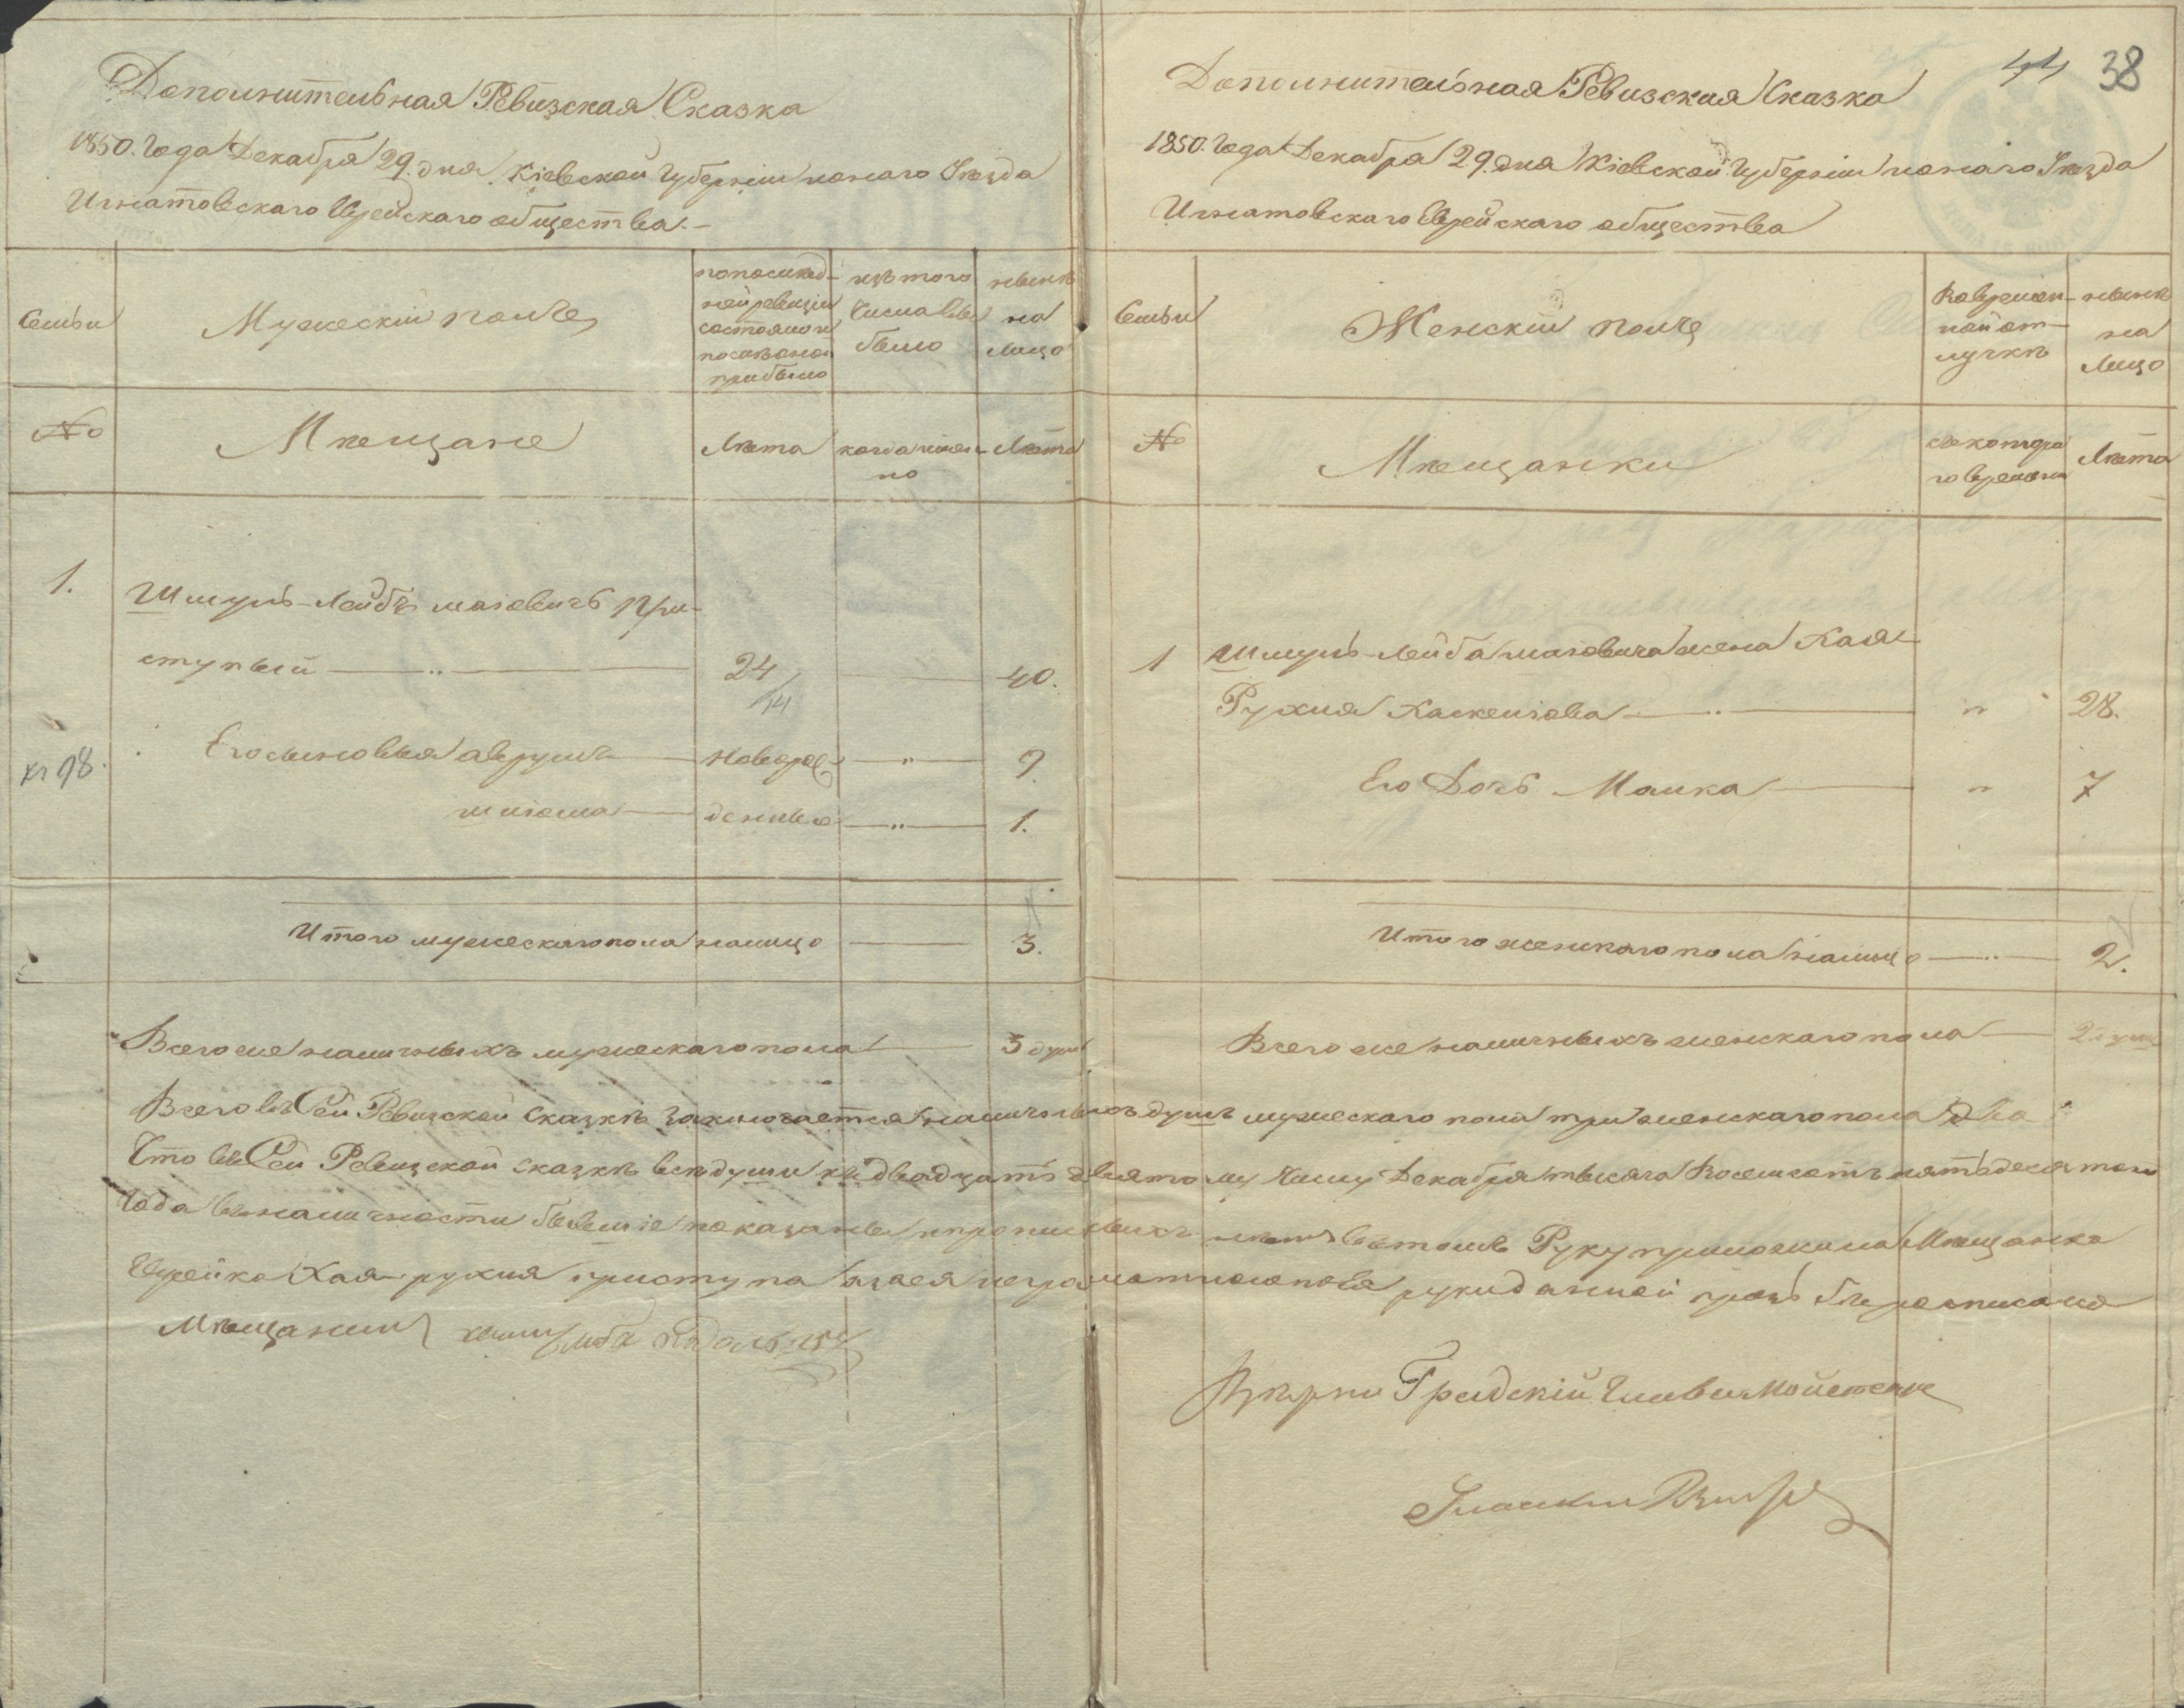 Дополнительная Ревизская Сказка
1850. Года Декабря 29. дня Кіевской Губерніи тогоже Уезда
Игнатовскаго Еврейскаго общества.-
Семьи
Мужескій полъ
по послед-
ней ревизіи
состояло и
после оной
прибыло
изъ того
числа вы
было
ныне
на
лицо
№
Мещане
Лета
когда имен-
но
Лета
1.
Шмуль-Лейбъ Маіовичъ При-
ступый 24 40.
14
кн 98.
Его сыновья Аврумъ Новорож 9.
Шлiома денные 1.
Итого мужескаго пола налицо 3.
Всего же наличныхъ мужескаго пола 3 душ
44 38
Дополнительная Ревизская Сказка
1850. Года Декабря 29. дня Кіевской Губерніи тогоже Уезда
Игнатовскаго Еврейскаго общества
Семьи
Женскій полъ
Во времен-
ной от-
лучке
ныне
на
лицо
№
Мещанки
съ котора
го времени
Лета
1 Шмуль-Лейба Маіовича жена Хая-
Рухля Хаскелiова " 28.
Его Дочь Малка " 7
Итого женскаго пола налицо 2.
Всего же наличныхъ женскаго пола 2 души
Всего въ Сей Ревизской сказке заключается наличныхъ душъ мужескаго пола три женскаго пола два
Что въ Сей Ревизской сказке все души къ двадцать девятому числу Декабря тысяча Восемсотъ пятьдесятого
Года въ наличности бывшіе показаны и прописныхъ нетъ въ томъ Руку приложила Мещанка
Еврейка Хая-рухля приступа а за ея неграмотностью по ея рукоданной прозьбе росписался
Мещанинъ
Градскій Глава